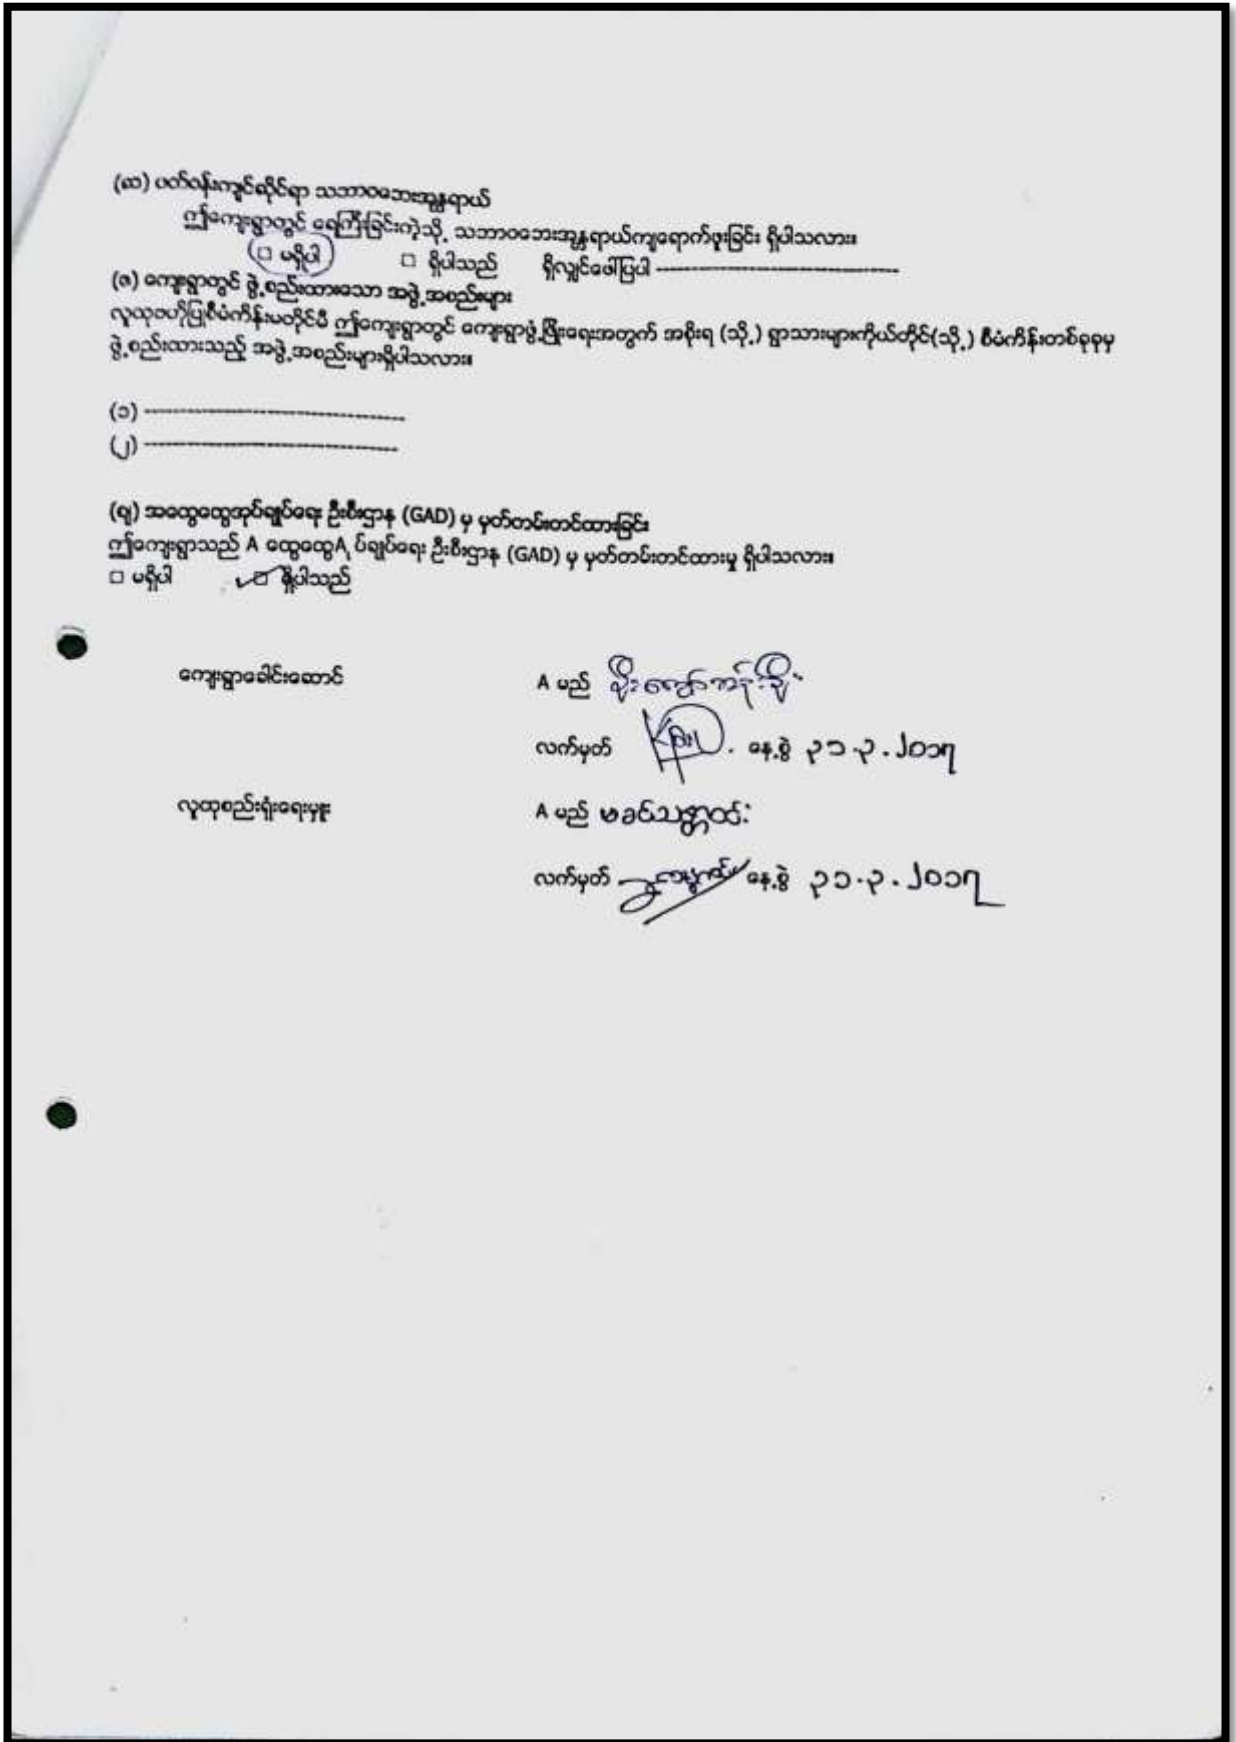 (ဆ) ပတ်ဝန်းကျင်ဆိုင်ရာ သဘာဝဘေးအန္တရာယ်
ဤကျေးရွာတွင် ရေကြီးခြင်းကဲ့သို့ သဘာဝဘေးအန္တရာယ်ကျရောက်ဖူးခြင်း ရှိပါသလား။
□ မရှိပါ □ ရှိပါသည် ရှိလျှင်ဖေါ်ပြပါ --------------------------------
(ဇ) ကျေးရွာတွင် ဖွဲ့စည်းထားသော အဖွဲ့အစည်းများ
လူထုဗဟိုပြုစီမံကိန်းမတိုင်မီ ဤကျေးရွာတွင် ကျေးရွာဖွံ့ဖြိုးရေးအတွက် အစိုးရ (သို့) ရွာသားများကိုယ်တိုင်(သို့) စီမံကိန်းတစ်ခုခုမှ
ဖွဲ့စည်းထားသည့် အဖွဲ့အစည်းများရှိပါသလား။
(၁) -----------------------------------
(၂) ----------------------------------
(ဈ) အထွေထွေအုပ်ချုပ်ရေး ဦးစီးဌာန (GAD) မှ မှတ်တမ်းတင်ထားခြင်း
ဤကျေးရွာသည် A ထွေထွေA ုပ်ချုပ်ရေး ဦးစီးဌာန (GAD) မှ မှတ်တမ်းတင်ထားမှု ရှိပါသလား။
□ မရှိပါ ✓□ ရှိပါသည်
ကျေးရွာခေါင်းဆောင် A မည်
လက်မှတ် နေ့စွဲ ၃၁.၃.၂၀၁၇
လူထုစည်းရုံးရေးမှူး A မည် မခင်သန္တာဝင်း
လက်မှတ် နေ့စွဲ ၃၁.၃.၂၀၁၇